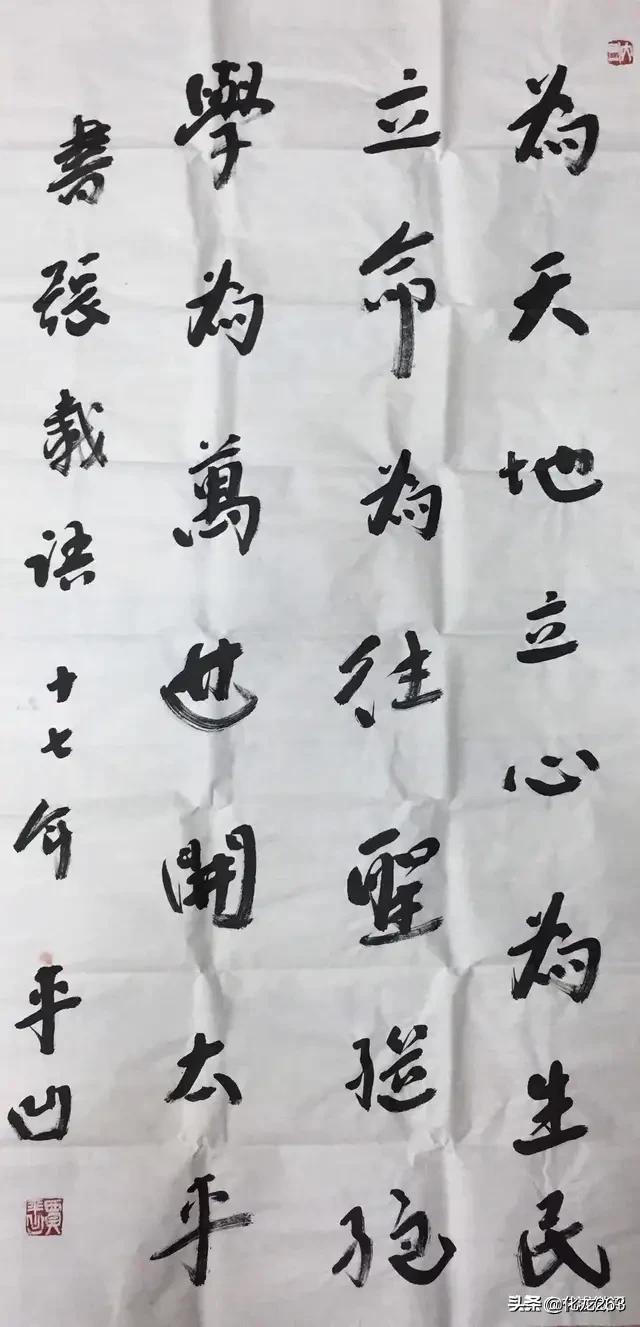 為天地立心為生民
立命為往聖繼絕
學為萬世開太平
書張載語 十七年 平凹
头条 @化龙263